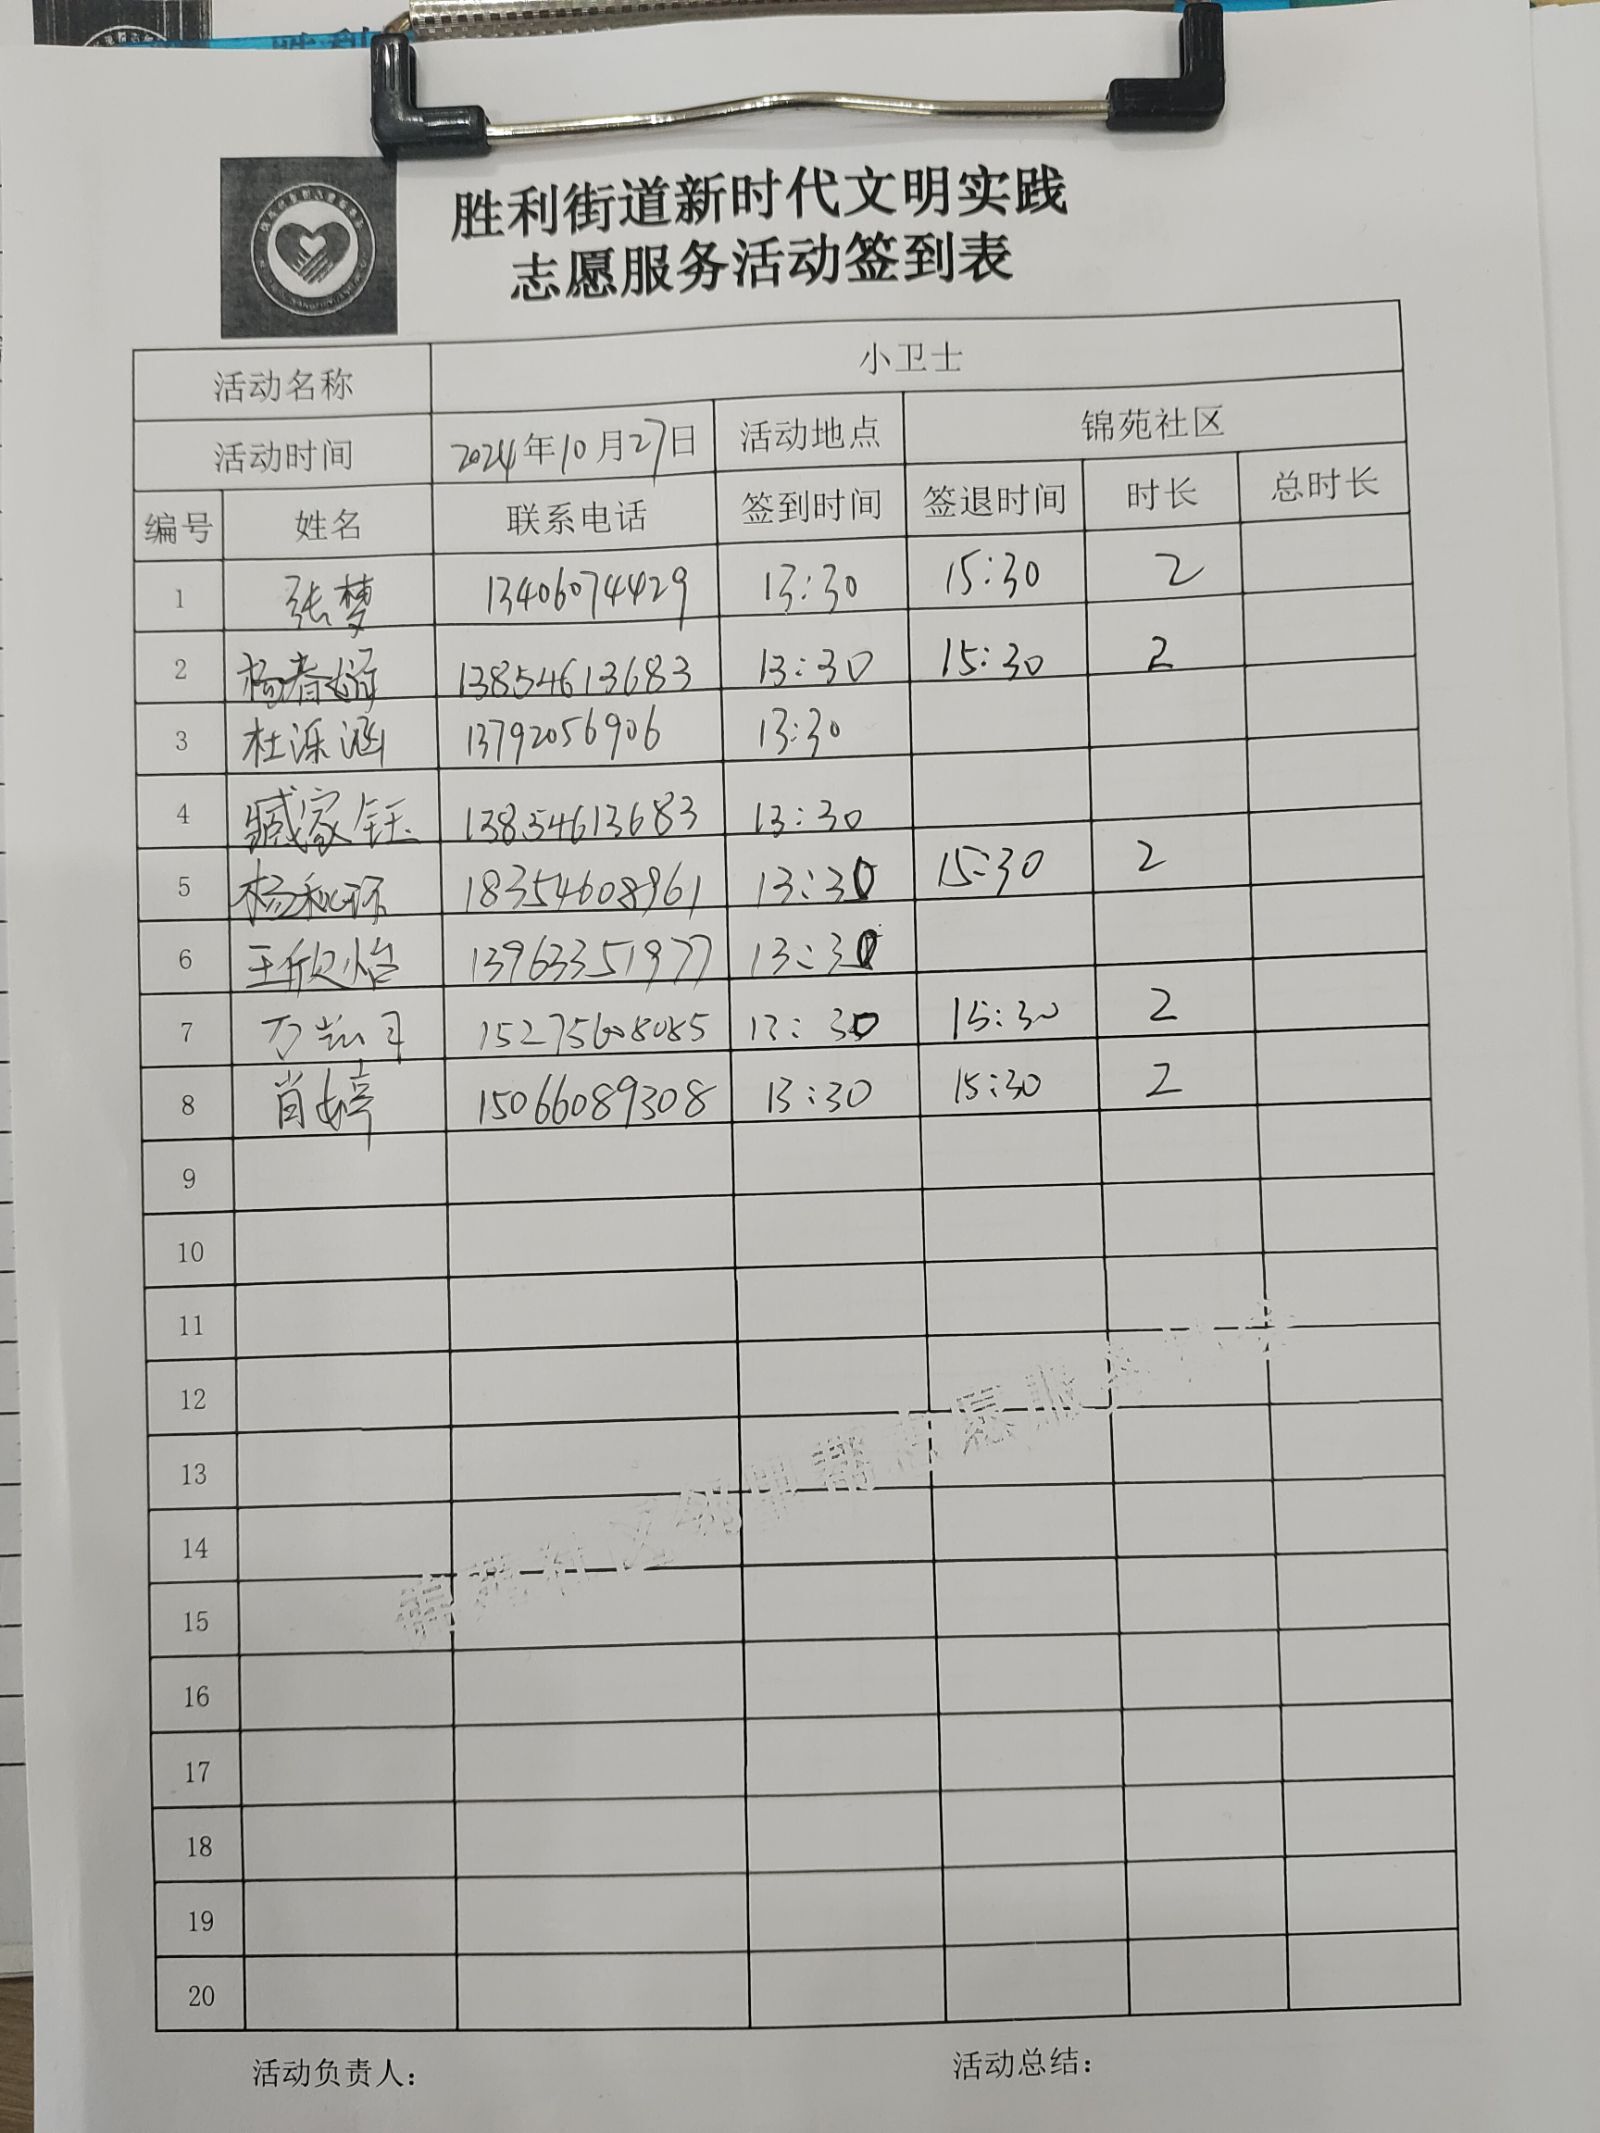 胜利街道新时代文明实践
志愿服务活动签到表
活动名称 小卫士
活动时间 2024年10月27日 活动地点 锦苑社区
编号 姓名 联系电话 签到时间 签退时间 时长 总时长
1 张梦 13406074429 13:30 15:30 2
2 13854613683 13:30 15:30 2
3 杜泺涵 13792056906 13:30
4 臧家钰 13854613683 13:30
5 杨和环 18354608961 13:30 15:30 2
6 王欣怡 13963351977 13:30
7 15275608085 13:30 15:30 2
8 肖婷 15066089308 13:30 15:30 2
9
10
11
12
13
14
15
16
17
18
19
20
锦苑社区邻里帮志愿服务
活动负责人： 活动总结：